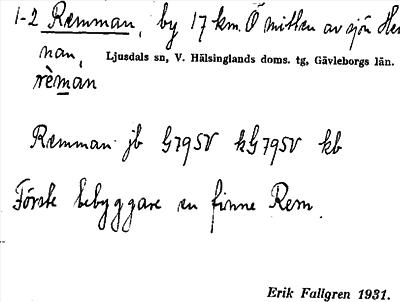 1-2 Remman, by 17 km Ö mitten av sjön Hen
nan, Ljusdals sn, V. Hälsinglands doms. tg, Gävleborgs län.
rèman
Remman jb G795V kG795V kb
Förste bebyggare en finne Rem.
Erik Fallgren 1931.